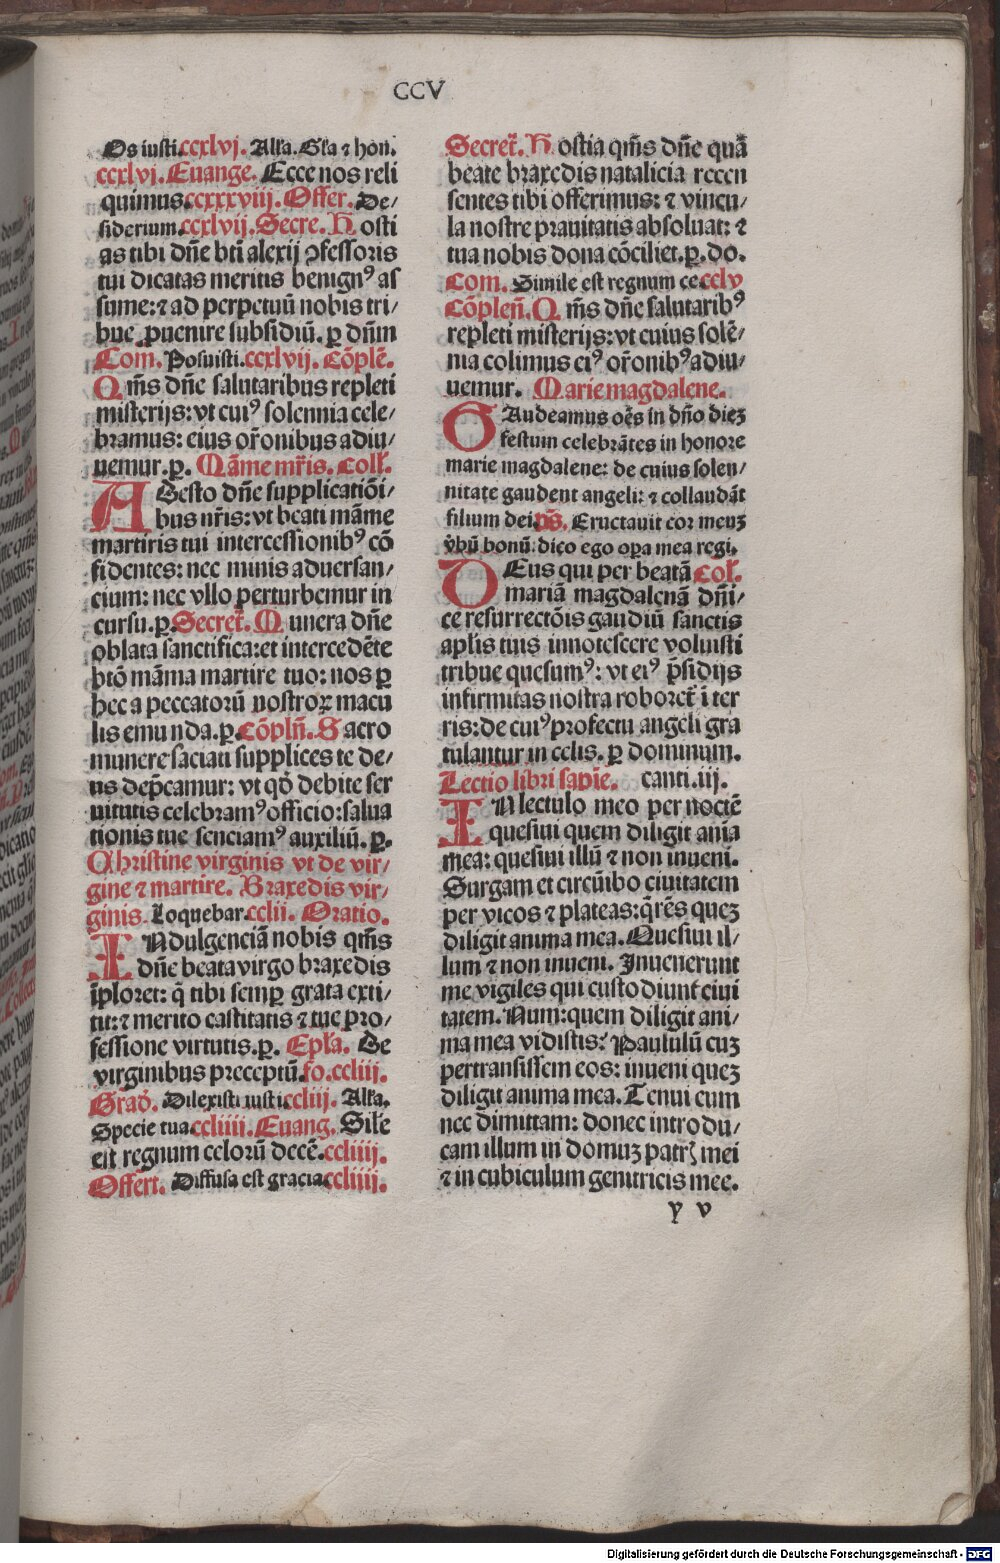 CCV
Os iusti.ccxlvj. Alľa. Gľa ⁊ hon.
ccxlvj. Euange. Ecce nos reli
quimus.ccxxxviij. Offer. De⸗
siderium.ccxlvij. Secre. H osti
as tibi dñe bti alexij ꝯfessoris
tui dicatas meritis benignꝰ as
sume: ⁊ ad perpetuū nobis tri⸗
bue ꝓuenire subsidiū. ꝑ dñm
Com. Posuisti.ccxlvij. Cōplē.
Q m̄s dñe salutaribus repleti
misterijs: vt cuiꝰ solennia cele⸗
bramus: eius oŕonibus adiu⸗
uemur.ꝑ. Māme mŕis. Coll̄.
ADesto dñe supplicatiōi⸗
bus nŕis: vt beati māme
martiris tui intercessionibꝰ cō
fidentes: nec minis aduersan⸗
cium: nec vllo perturbemur in
cursu.ꝑ. Secret̄. M unera dñe
oblata sanctifica: et intercedēte
btō māma martire tuo: nos ꝑ
hec a peccatorū nostroꝝ macu
lis emunda.ꝑ. Cōplñ. S acro
munere saciati supplices te de⸗
us dep̄camur: vt qđ debite ser
uitutis celebramꝰ officio: salua
tionis tue senciamꝰ auxiliū. ꝑ.
Christine virginis vt de vir⸗
gine ⁊ martire. Braxedis vir⸗
ginis. Loquebar.cclii. Oratio.
INdulgenciā nobis qm̄s
dñe beata virgo braxedis
īploret: q̄ tibi semꝑ grata exti⸗
tit: ⁊ merito castitatis ⁊ tue pro⸗
fessione virtutis.ꝑ. Epľa. De
virginibus preceptū.fo.ccliij.
Građ. Dilexisti iusti.ccliij. Alľa.
Specie tua.ccliiij. Euang. Siľe
est regnum celorū decē.ccliiij.
Offert. Diffusa est gracia.ccliiij.
Secret̄. H ostia qm̄s dñe quā
beate braxedis natalicia recen
sentes tibi offerimus: ⁊ vincu⸗
la nostre prauitatis absoluat: ⁊
tua nobis dona cōciliet.ꝑ.do.
Com. Simile est regnum ce.cclv
Cōpleñ. Q m̄s dñe salutaribꝰ
repleti misterijs: vt cuius solē⸗
nia colimus eiꝰ oŕonibꝰ adiu⸗
uemur. Marie magdalene.
GAudeamus oēs in dño dieꝫ
festum celebrātes in honore
marie magdalene: de cuius solen⸗
nitate gaudent angeli: ⁊ collaudāt
filium dei. ps̄. Eructauit cor meuꝫ
v̄bū bonū: dico ego oꝑa mea regi.
DEus qui per beatā Col̄.
mariā magdalenā dñi⸗
ce resurrectōis gaudiū sanctis
apľis tuis innotescere voluisti
tribue quesumꝰ: vt eiꝰ p̄sidijs
infirmitas nostra roboret̄ ī ter
ris: de cuiꝰ profectu angeli gra
tulantur in celis. ꝑ dominum.
Lectio libri sapiē. canti.iij.
IN lectulo meo per noctē
quesiui quem diligit aīa
mea: quesiui illū ⁊ non inueni.
Surgam et circūibo ciuitatem
per vicos ⁊ plateas: q̄rēs queꝫ
diligit anima mea. Quesiui il⸗
lum ⁊ non inueni. Inuenerunt
me vigiles qui custodiunt ciui
tatem. Num: quem diligit ani⸗
ma mea vidistis? Paululū cuꝫ
pertransissem eos: inueni queꝫ
diligit anima mea. Tenui eum
nec dimittam: donec introdu⸗
cam illum in domuꝫ patrꝭ mei
⁊ in cubiculum genitricis mee.
y v
Digitalisierung gefördert durch die Deutsche Forschungsgemeinschaft - DFG